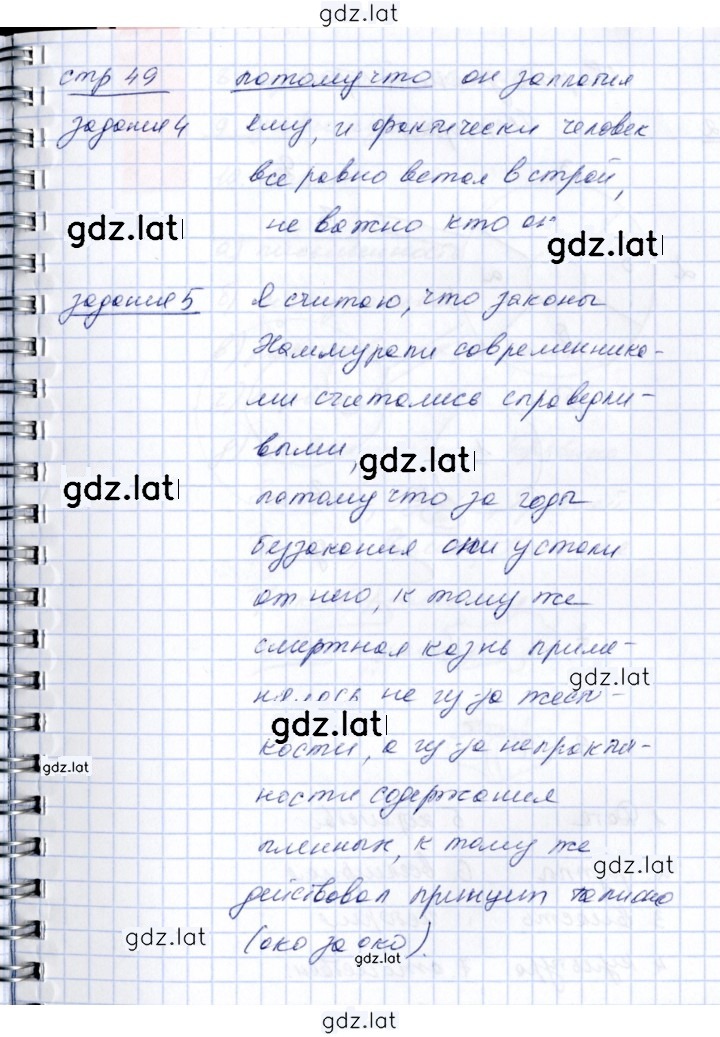 gdz.lat
стр 49 потому что он заплатил
задания 4 ему, и фактически человек
все равно встал в строй,
gdz.lat не важно кто он gdz.lat
задания 5 Я считаю, что законы
Хаммурапи современника-
ми считались справедли-
выми, gdz.lat
gdz.lat потому что за годы
беззакония они устали
от него, к тому же
смертная казнь приме-
gdz.lat
нялась не из-за жест-
gdz.lat
кости, а из-за непрактич-
gdz.lat
ности содержания
пленных, к тому же
gdz.lat
действовал принцип талиона
gdz.lat (око за око).
gdz.lat
gdz.lat